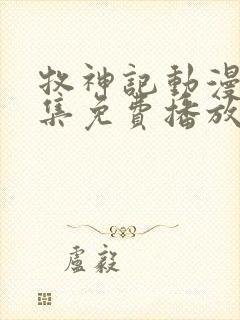 牧神記動漫
集免費播放
盧毅